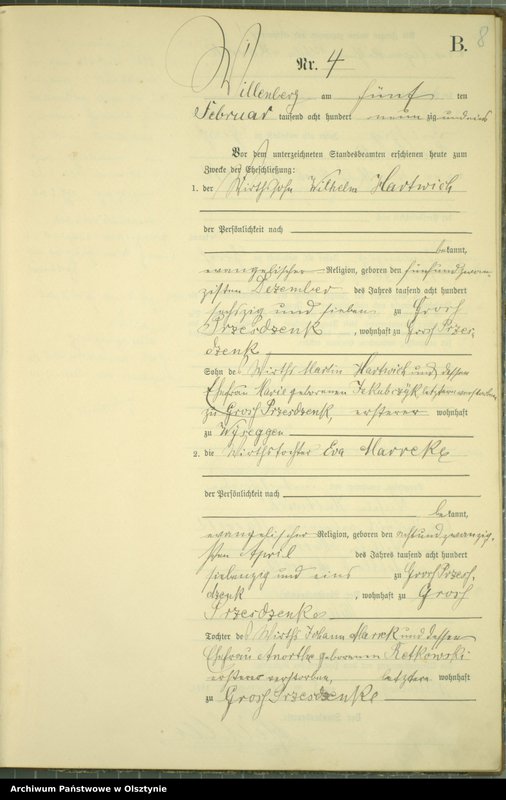 B. 8
Nr. 4
Willenberg am fünf ten
Februar tausend acht hundert neun zig und
Vor dem unterzeichneten Standesbeamten erschienen heute zum
Zwecke der Eheschließung:
1. der Wirthssohn Wilhelm Hartwich
der Persönlichkeit nach
bekannt,
evangelischer Religion, geboren den fünfundzwan-
zigsten Dezember des Jahres tausend acht hundert
sechszig und sieben zu Groß
, wohnhaft zu Groß
Sohn des Wirths Martin Hartwich und dessen
Ehefrau Marie geborenen letztere verstorben
zu Groß ersterer wohnhaft
zu Wyseggen
2. die Wirthstochter Eva
der Persönlichkeit nach
bekannt,
evangelischer Religion, geboren den achtundzwanzig-
sten April des Jahres tausend acht hundert
siebenzig und eins zu Groß
, wohnhaft zu Groß
Tochter des Wirths Johann und dessen
Ehefrau geborenen Retkowski
ersterer verstorben, letztere wohnhaft
zu Groß
Archiwum Państwowe w Olsztynie